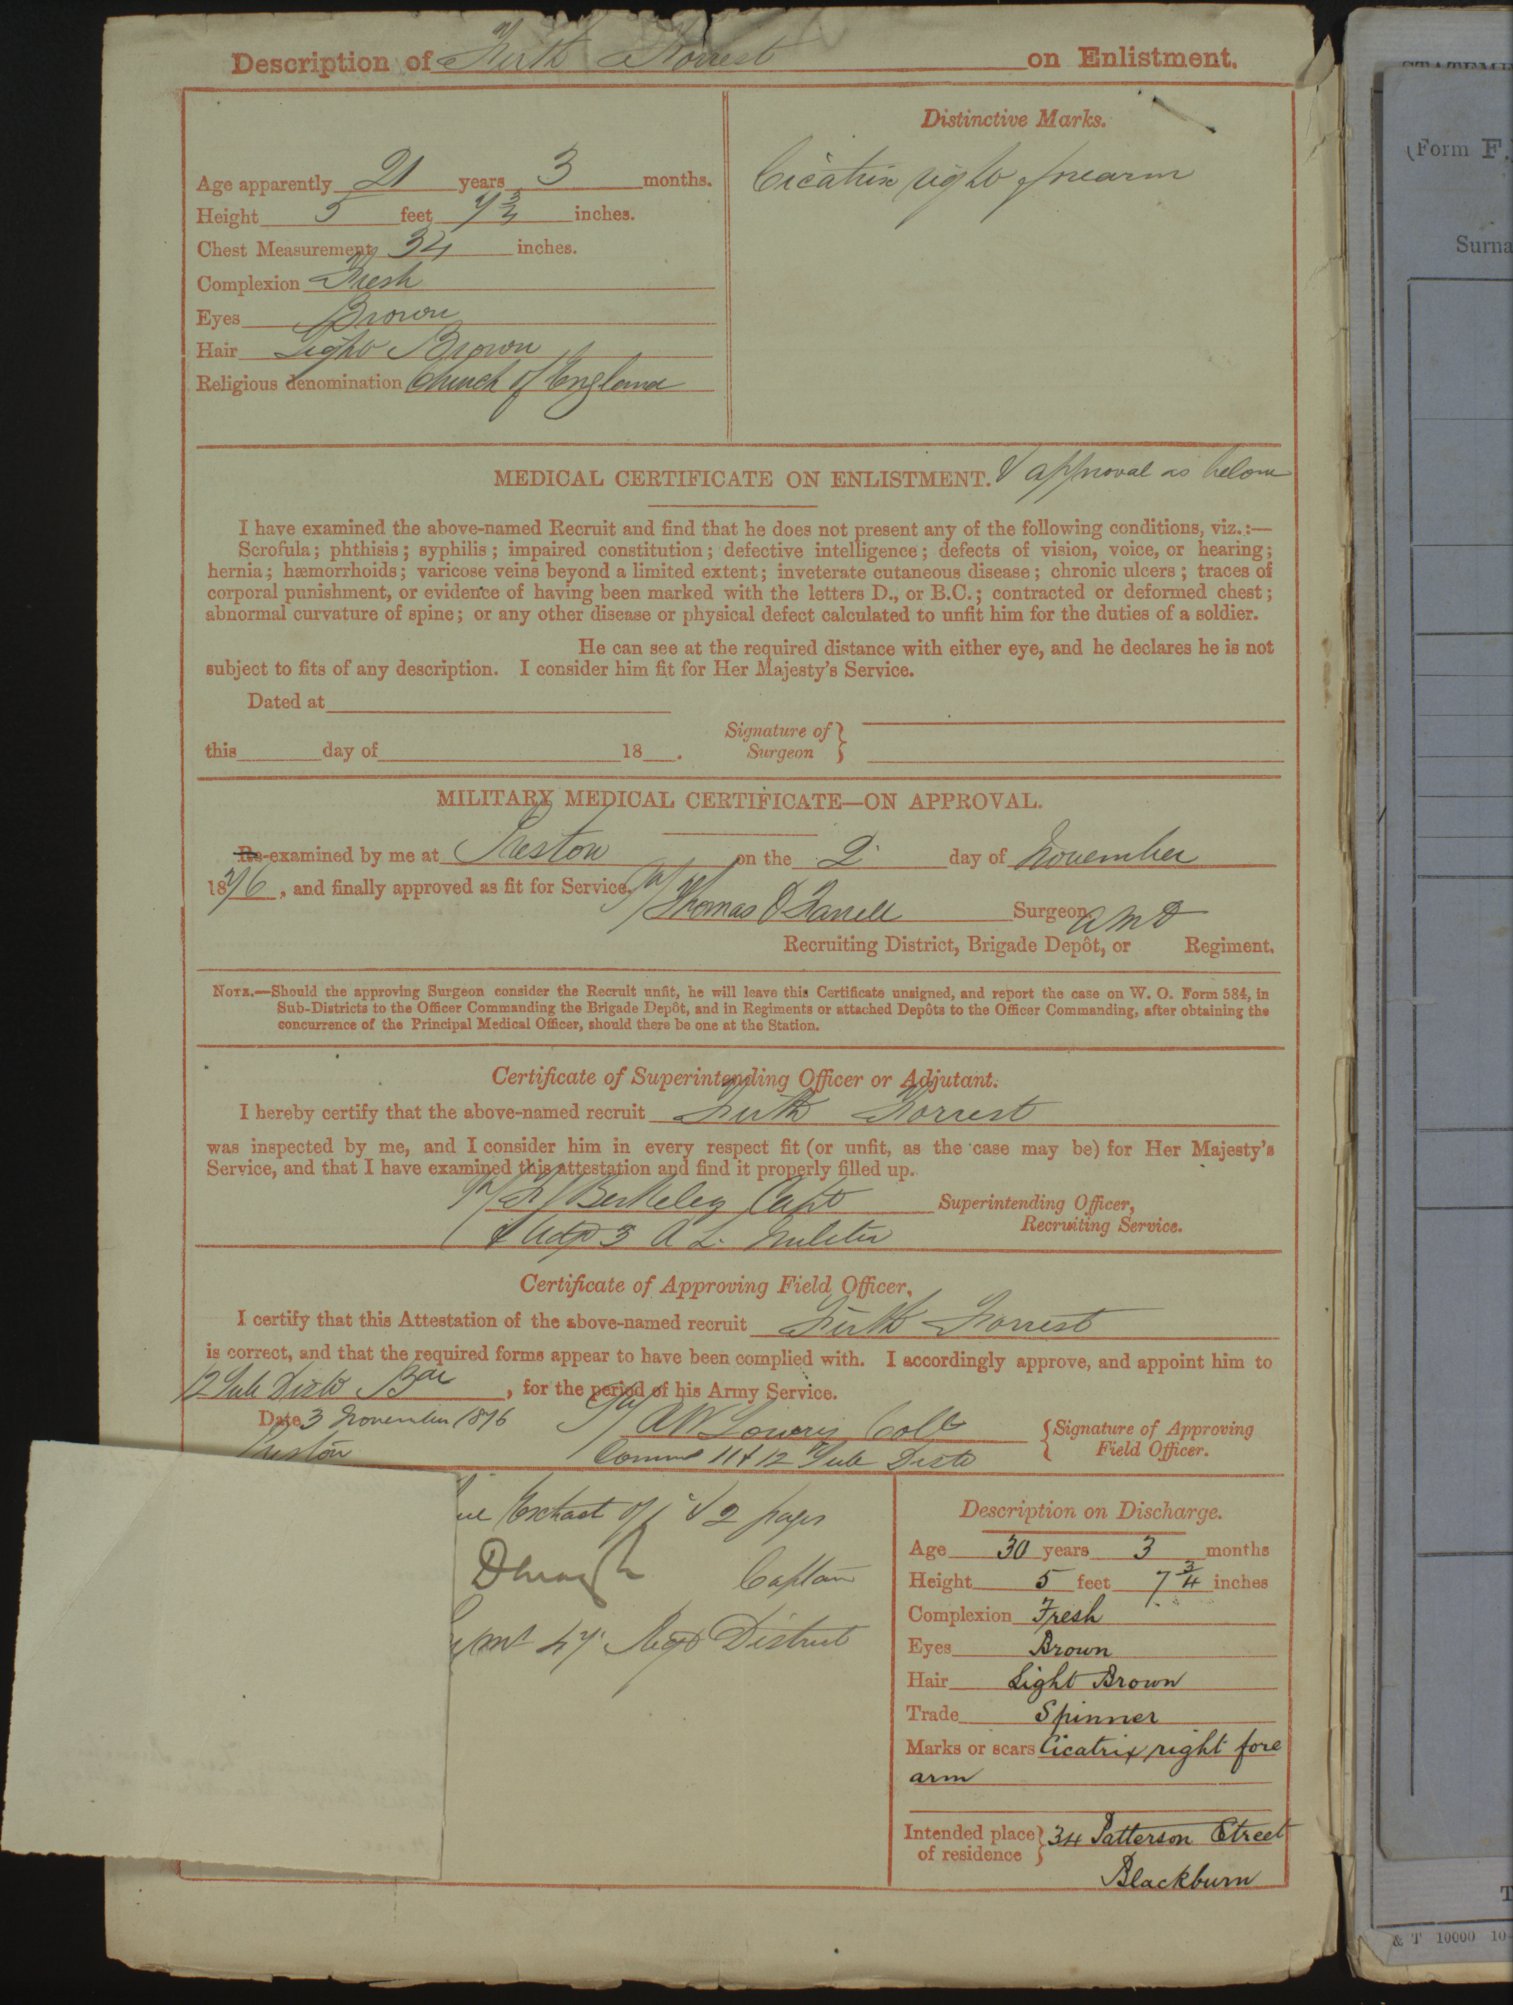 Description of Firth Forrest on Enlistment.
Age apparently 21 years 3 months.
Height 5 feet 7 3/4 inches.
Chest Measurement 34 inches.
Complexion Fresh
Eyes Brown
Hair Light Brown
Religious denomination Church of England
Distinctive Marks.
Cicatrix right forearm
MEDICAL CERTIFICATE ON ENLISTMENT. & approval as below
I have examined the above-named Recruit and find that he does not present any of the following conditions, viz.:—
Scrofula; phthisis; syphilis; impaired constitution; defective intelligence; defects of vision, voice, or hearing;
hernia; hæmorrhoids; varicose veins beyond a limited extent; inveterate cutaneous disease; chronic ulcers; traces of
corporal punishment, or evidence of having been marked with the letters D., or B.C.; contracted or deformed chest;
abnormal curvature of spine; or any other disease or physical defect calculated to unfit him for the duties of a soldier.
He can see at the required distance with either eye, and he declares he is not
subject to fits of any description. I consider him fit for Her Majesty's Service.
Dated at
this day of 18 .
Signature of
Surgeon
MILITARY MEDICAL CERTIFICATE—ON APPROVAL.
Re-examined by me at Preston on the 2 day of November
1876, and finally approved as fit for Service.
Thomas O'Farrell Surgeon AMD
Recruiting District, Brigade Depôt, or Regiment.
NOTE.—Should the approving Surgeon consider the Recruit unfit, he will leave this Certificate unsigned, and report the case on W. O. Form 584, in
Sub-Districts to the Officer Commanding the Brigade Depôt, and in Regiments or attached Depôts to the Officer Commanding, after obtaining the
concurrence of the Principal Medical Officer, should there be one at the Station.
Certificate of Superintending Officer or Adjutant.
I hereby certify that the above-named recruit Firth Forrest
was inspected by me, and I consider him in every respect fit (or unfit, as the case may be) for Her Majesty's
Service, and that I have examined this attestation and find it properly filled up.
Berkeley Capt Superintending Officer,
Recruiting Service.
& Adjt 3 R L. Militia
Certificate of Approving Field Officer.
I certify that this Attestation of the above-named recruit Firth Forrest
is correct, and that the required forms appear to have been complied with. I accordingly approve, and appoint him to
12 Sub Dist Bde, for the period of his Army Service.
Date 3 November 1876
Preston
A W Lowry Col
Comm 11 & 12 Sub Dists
Signature of Approving
Field Officer.
Extract of 1 & 2 pages
Captain
47 Regt District
Description on Discharge.
Age 30 years 3 months
Height 5 feet 7 3/4 inches
Complexion Fresh
Eyes Brown
Hair Light Brown
Trade Spinner
Marks or scars Cicatrix right fore
arm
Intended place
of residence
34 Patterson Street
Blackburn
(Form F.
Surna
& T 10000 10-